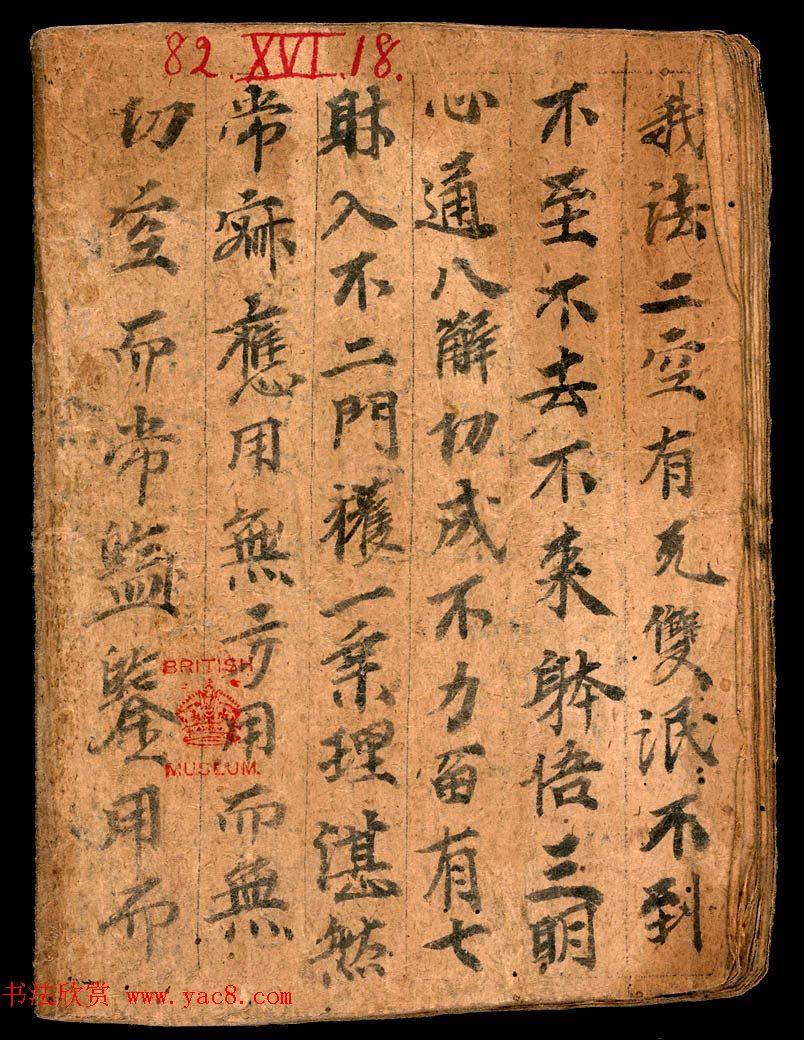 82.XVI.18.
我法二空有无雙泯不到
不至不去不来躰悟三明
心通八解切成不力畐有七
財入不二門穫一乗理湛然
常寂應用無方用而無
切空而常監鋻用而
BRITISH
MUSEUM
书法欣赏 www.yac8.com